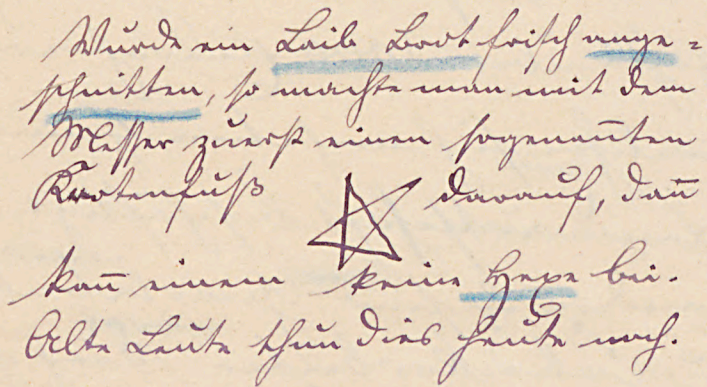 Wurde ein Laib Brot frisch ange=
schnitten, so machte man mit dem
Messer zuerst einen sogenan̄ten
Krotenfuß darauf, dan̄
kan̄ einem keine Hexe bei.
Alte Leute thun dies heute noch.